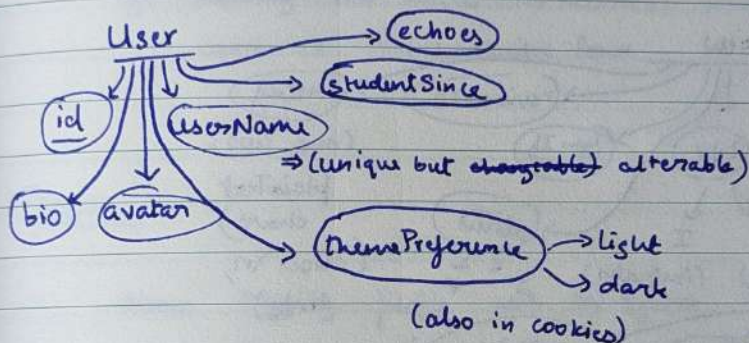 User
echoes
studentSince
id
userName
⇒ (unique but changeable) alterable)
bio
avatar
themePreference
→ light
→ dark
(also in cookies)